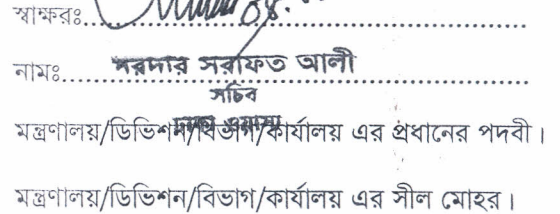 স্বাক্ষরঃ
নামঃ সরদার সরাফত আলী
সচিব
ঢাকা ওয়াসা
মন্ত্রণালয়/ডিভিশন/বিভাগ/কার্যালয় এর প্রধানের পদবী।
মন্ত্রণালয়/ডিভিশন/বিভাগ/কার্যালয় এর সীল মোহর।